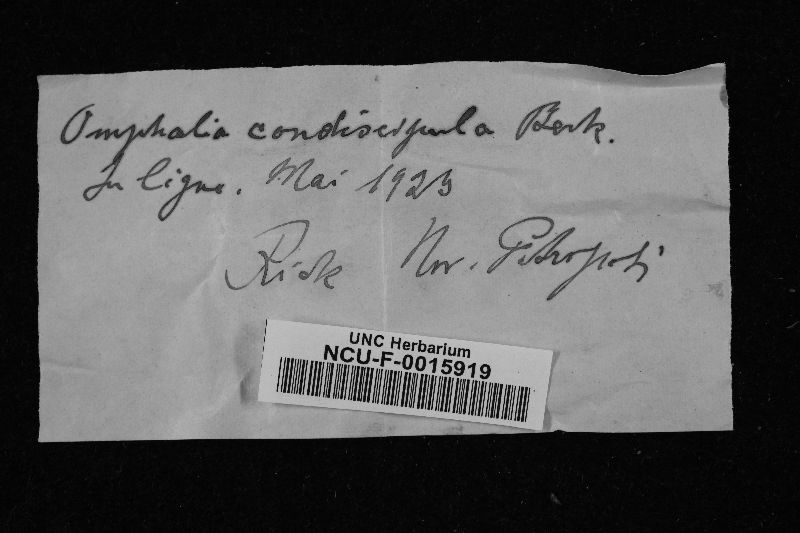 Omphalia condiscipula Berk.
In ligno. Mai 1923
Rick Nov. Petropoli
UNC Herbarium
NCU-F-0015919